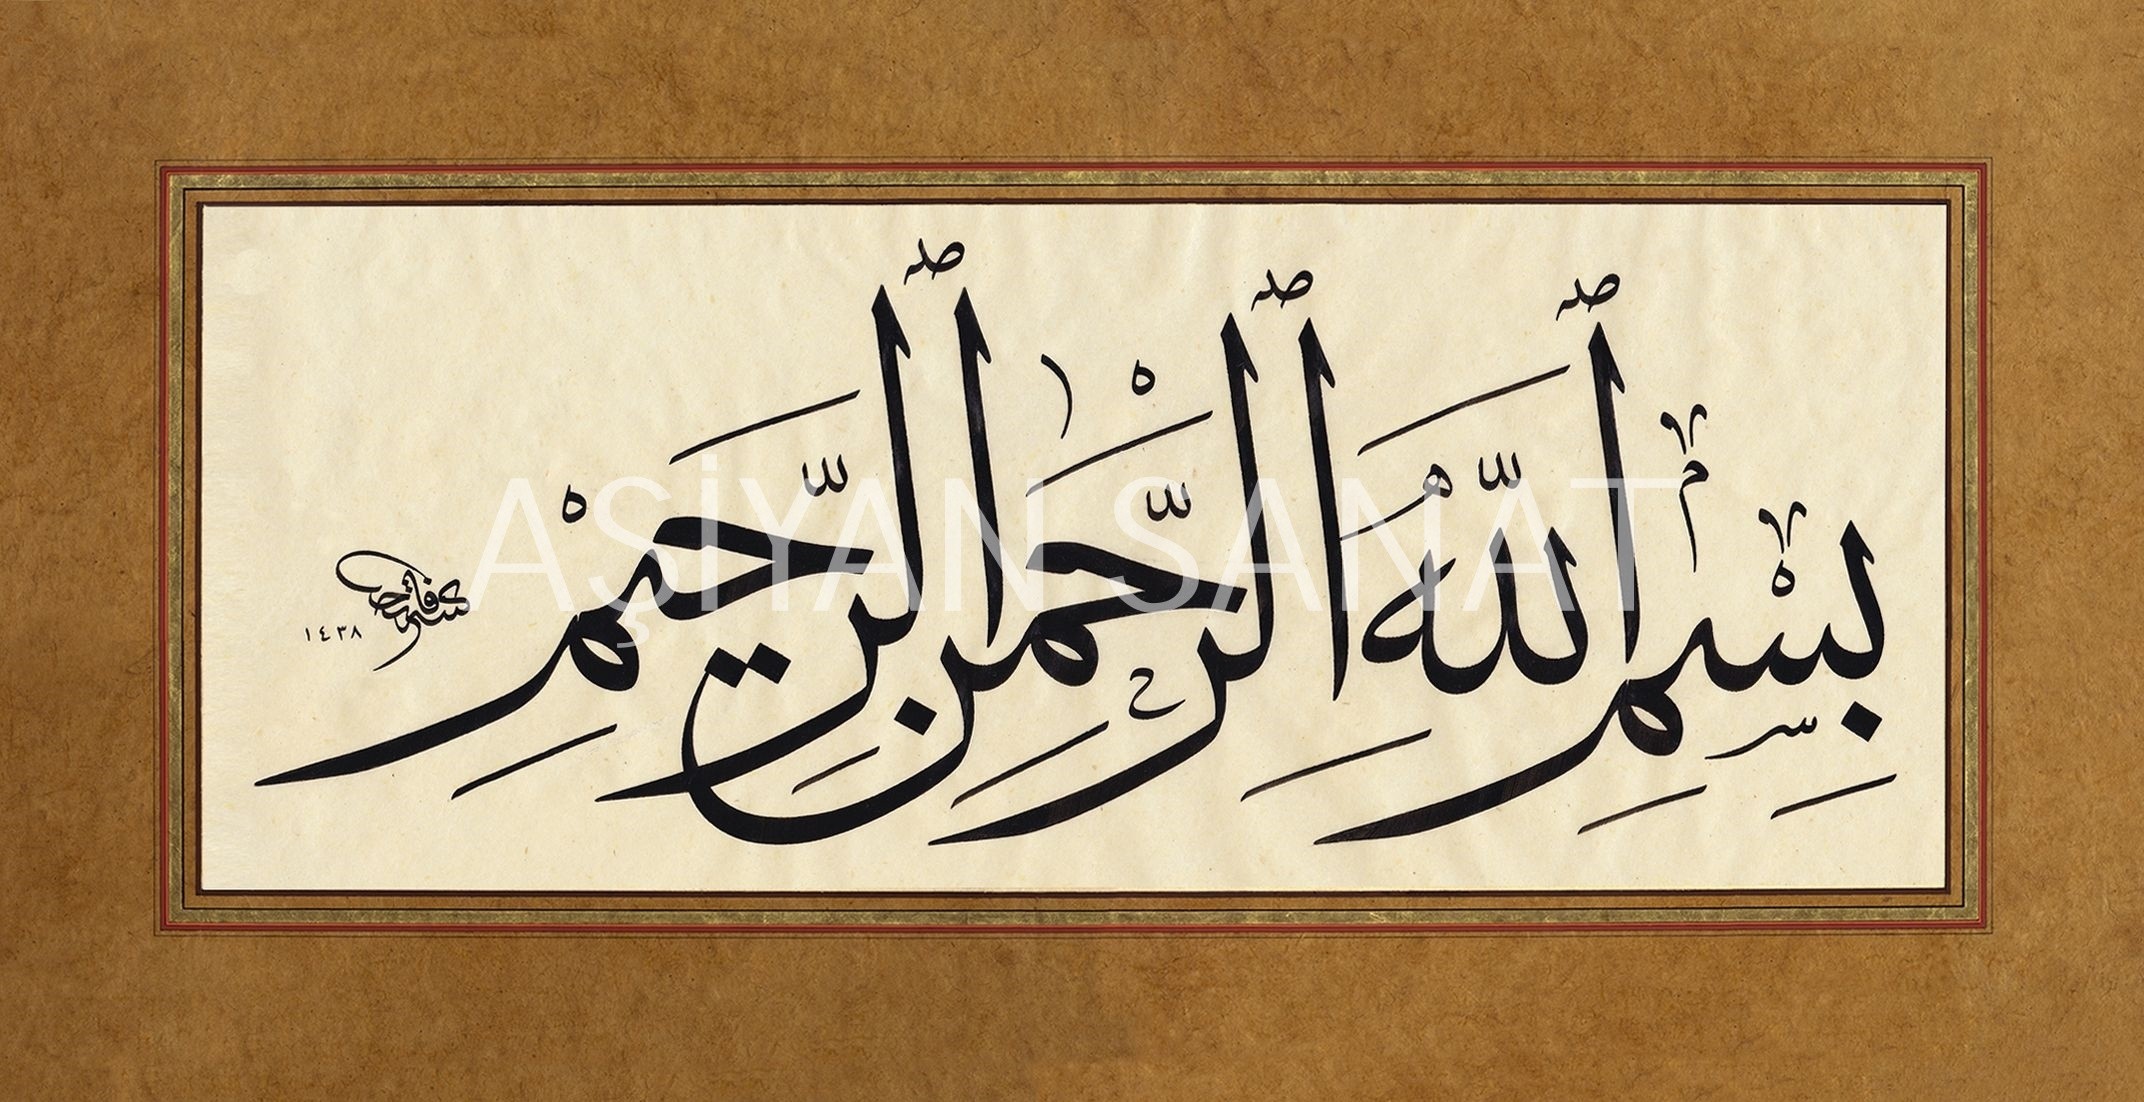 بِسْمِ ٱللَّهِ ٱلرَّحْمٰنِ ٱلرَّحِيمِ
١٤٣٨
AŞİYAN SANAT